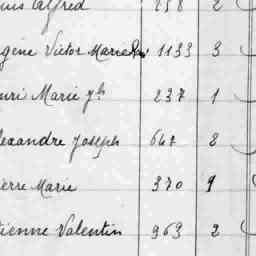 Alfred 238 2
gène Victor Marie 1133 3
enri Marie Jh 237 1
lexandre Joseph 647 8
ierre Marie 370 9
tienne Valentin 963 2